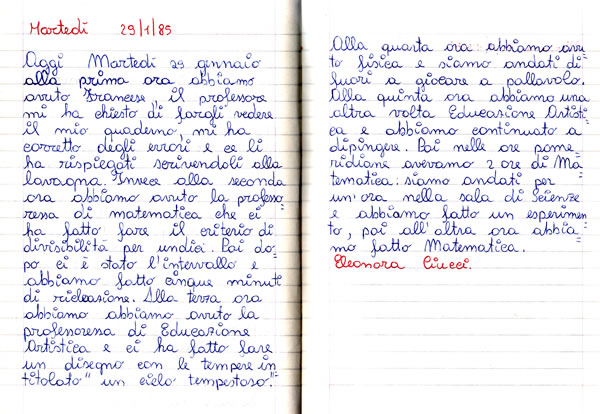 Martedì 29/1/85
Oggi Martedì 29 gennaio
alla prima ora abbiamo
avuto Francese, il professore
mi ha chiesto di fargli vedere
il mio quaderno, mi ha
corretto degli errori e ce li
ha rispiegati scrivendoli alla
lavagna. Invece alla seconda
ora abbiamo avuto la profeso=
ressa di matematica che ci
ha fatto fare il criterio di
divisibilità per undici. Poi do=
po ci è stato l'intervallo e
abbiamo fatto cinque minuti
di ricreasione. Alla terza ora
abbiamo abbiamo avuto la
professoressa di Educazione
Artistica e ci ha fatto fare
un disegno con le tempere in=
titolato" un cielo tempestoso."
Alla quarta ora abbiamo avu=
to fisica e siamo andati di
fuori a giocare a pallavolo.
Alla quinta ora abbiamo una
altra volta Educazione Artisti=
ca e abbiamo continuato a
dipingere. Poi nelle ore pome=
ridiane avevamo 2 ore di Ma=
tematica: siamo andati per
un'ora nella sala di Scienze
e abbiamo fatto un esperimen=
to, poi all'altra ora abbia=
mo fatto Matematica.
Eleonora Ciucci.